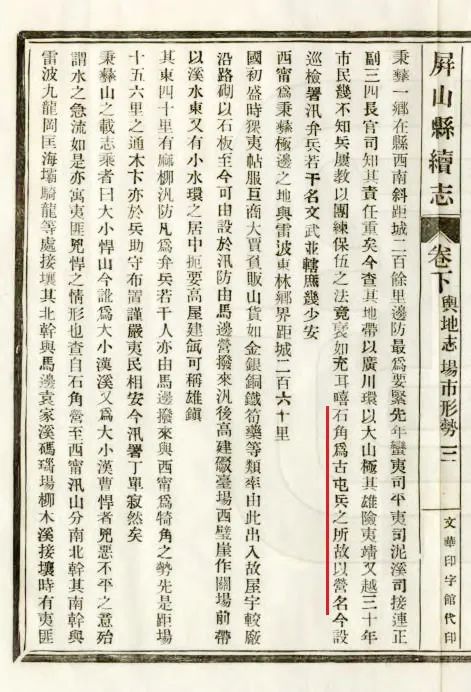 屏山縣續志
卷下
輿地志 場市形勢 三
文華印字館代印
秉彝一鄉在縣西南斜距城二百餘里邊防最爲要緊先年蠻夷司平夷司泥溪司接連正
副三四長官司知其責任重矣今查其地帶以廣川環以大山極其雄險夷靖又越三十年
市民幾不知兵屢教以團練保伍之法竟褎如充耳嘻石角爲古屯兵之所故以營名今設
巡檢署汛弁兵若干名文武並轄庶幾少安
西甯爲秉彝極邊之地與雷波東林鄉界距城二百六十里
國初盛時猓夷帖服巨商大賈負販山貨如金銀銅鐵筍藥等類率由此出入故屋宇較廠
沿路砌以石板至今可由設於汛防由馬邊營撥來汛後高建礮臺場西璧崖作關場前帶
以溪水東又有小水環之居中扼要高屋建瓴可稱雄鎭
其東四十里有麻柳汛防凡爲弁兵若干人亦由馬邊撥來與西甯爲犄角之勢先是距場
十五六里之通木卞亦於兵助守布置謹嚴夷民相安今汛署丁單寂然矣
秉彝山之載志乘者曰大小悍山今訛爲大小漢溪又爲大小漢曹悍者兇惡不平之意殆
謂水之急流如是亦寓夷匪兇悍之情形也查白石角營至西甯汛山分南北幹其南幹與
雷波九龍岡匡海壩騎龍等處接壤其北幹與馬邊袁家溪碼瑙場柳木溪接壤時有夷匪